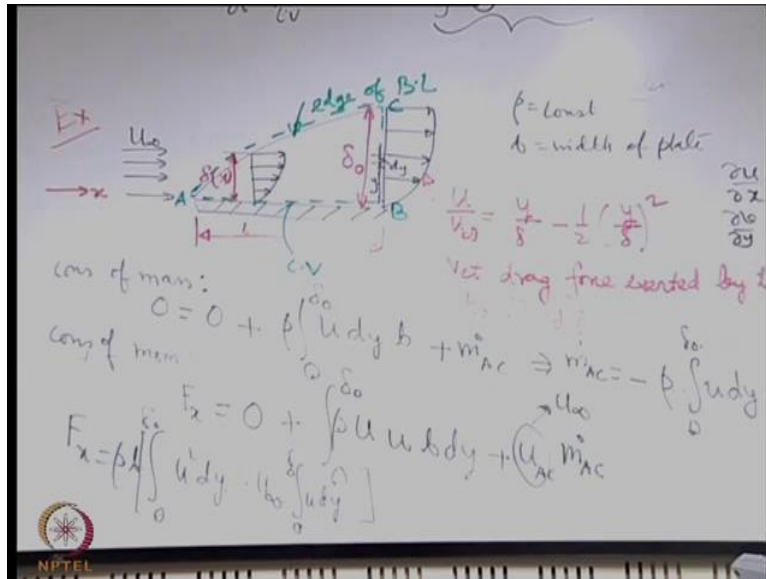 Ex
U∞
edge of B.L
C
δ(x)
δ₀
dy
y
A
B
x
L
C.V
ρ = const
b = width of plate
u/u∞ = y/δ - 1/2 (y/δ)²
∂u/∂x
∂v/∂y
Net drag force exerted by
cons of mass:
0 = 0 + ρ ∫₀^δ₀ u dy b + ṁ_AC ⇒ ṁ_AC = - ρ ∫₀^δ₀ u dy
cons of mom
F_x = 0 + ∫₀^δ₀ ρ u u b dy + u_AC ṁ_AC
u∞
F_x = ρb [∫₀^δ₀ u² dy - u∞ ∫₀^δ₀ u dy]
NPTEL